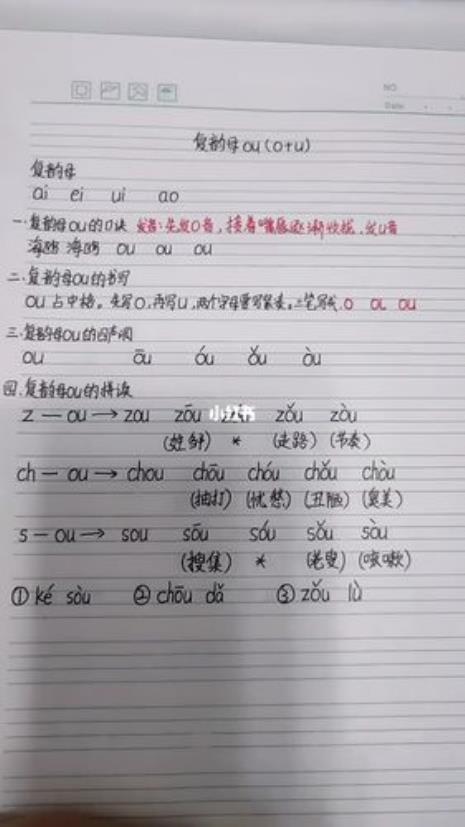 NO
Date
复韵母ou(o+u)
复韵母
ai ei ui ao
一.复韵母ou的口诀 发音:先发o音,接着嘴唇逐渐收拢,发u音
海鸥 海鸥 ou ou ou
二.复韵母ou的书写
ou 占中格。先写o,再写u,两个字母要写紧凑。三笔写成. o ou ou
三.复韵母ou的四声调
ou ōu óu ǒu òu
四.复韵母ou的拼读
z — ou → zou zōu zǒu zòu
小红书
(姓邹) * (走路) (节奏)
ch — ou → chou chōu chóu chǒu chòu
(抽打) (忧愁) (丑陋) (臭美)
s — ou → sou sōu sóu sǒu sòu
(搜集) * (老叟) (咳嗽)
① ké sòu ② chōu dǎ ③ zǒu lù